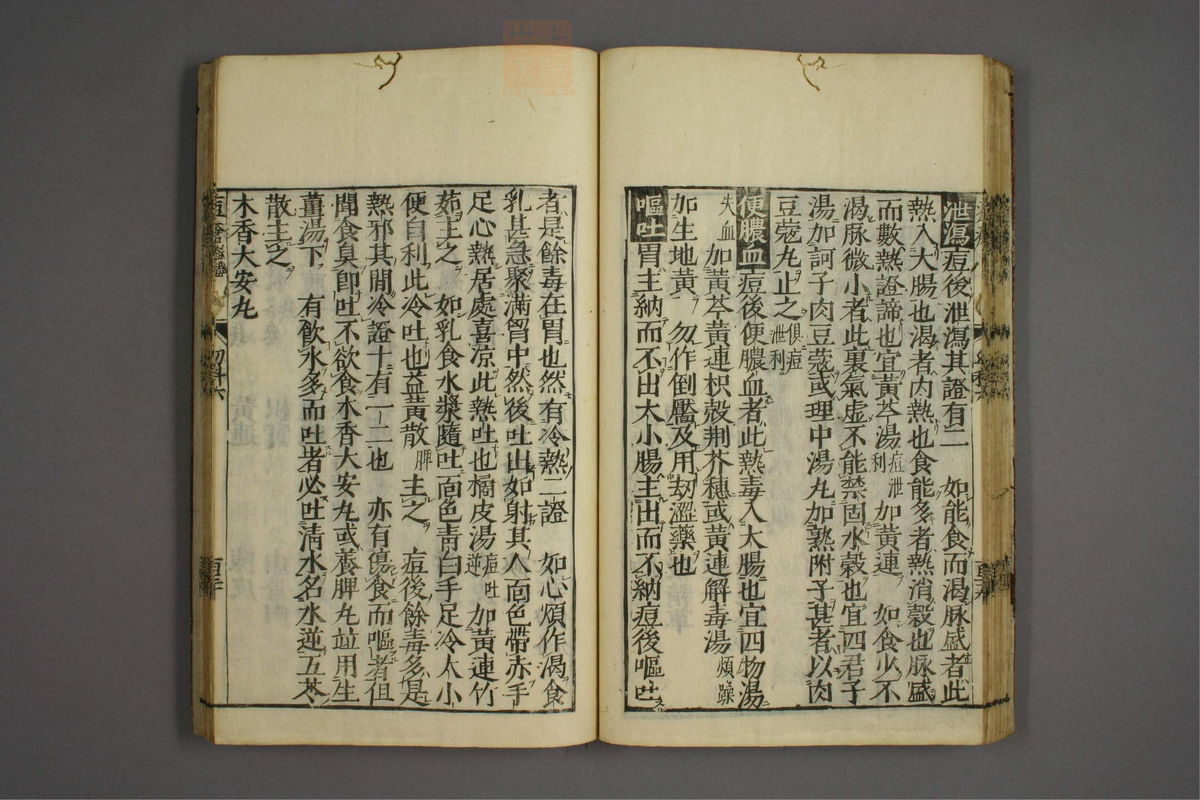 泄瀉痘後泄瀉其證有二　如能食而渴脉盛者此
熱入大腸也渴者内熱也食能多者熱消穀也脉盛
而數熱證諦也宜黃芩湯痘泄利加黃連　如食少不
渴脉微小者此裏氣虚不能禁固水穀也宜四君子
湯加訶子肉豆蔻或理中湯丸加熟附子甚者以肉
豆蔻丸止之俱痘泄利
便膿血痘後便膿血者此熱毒入大腸也宜四物湯
失血加黃芩黃連枳殼荆芥穗或黃連解毒湯煩躁
加生地黃　勿作倒黶及用刼澀藥也
嘔吐胃主納而不出大小腸主出而不納痘後嘔吐
者是餘毒在胃也然有冷熱二證　如心煩作渴食
乳甚急聚滿胃中然後吐出如射其人面色帶赤手
足心熱居處喜凉此熱吐也橘皮湯痘吐逆加黃連竹
茹主之　如乳食水漿隨吐面色靑白手足冷大小
便自利此冷吐也益黃散脾主之　痘後餘毒多是
熱邪其間冷證十有一二也　亦有傷食而嘔者但
聞食臭卽吐不欲食木香大安丸或養脾丸竝用生
薑湯下　有飲水多而吐者必吐淸水名水逆五苓
散主之
木香大安丸
幼科六